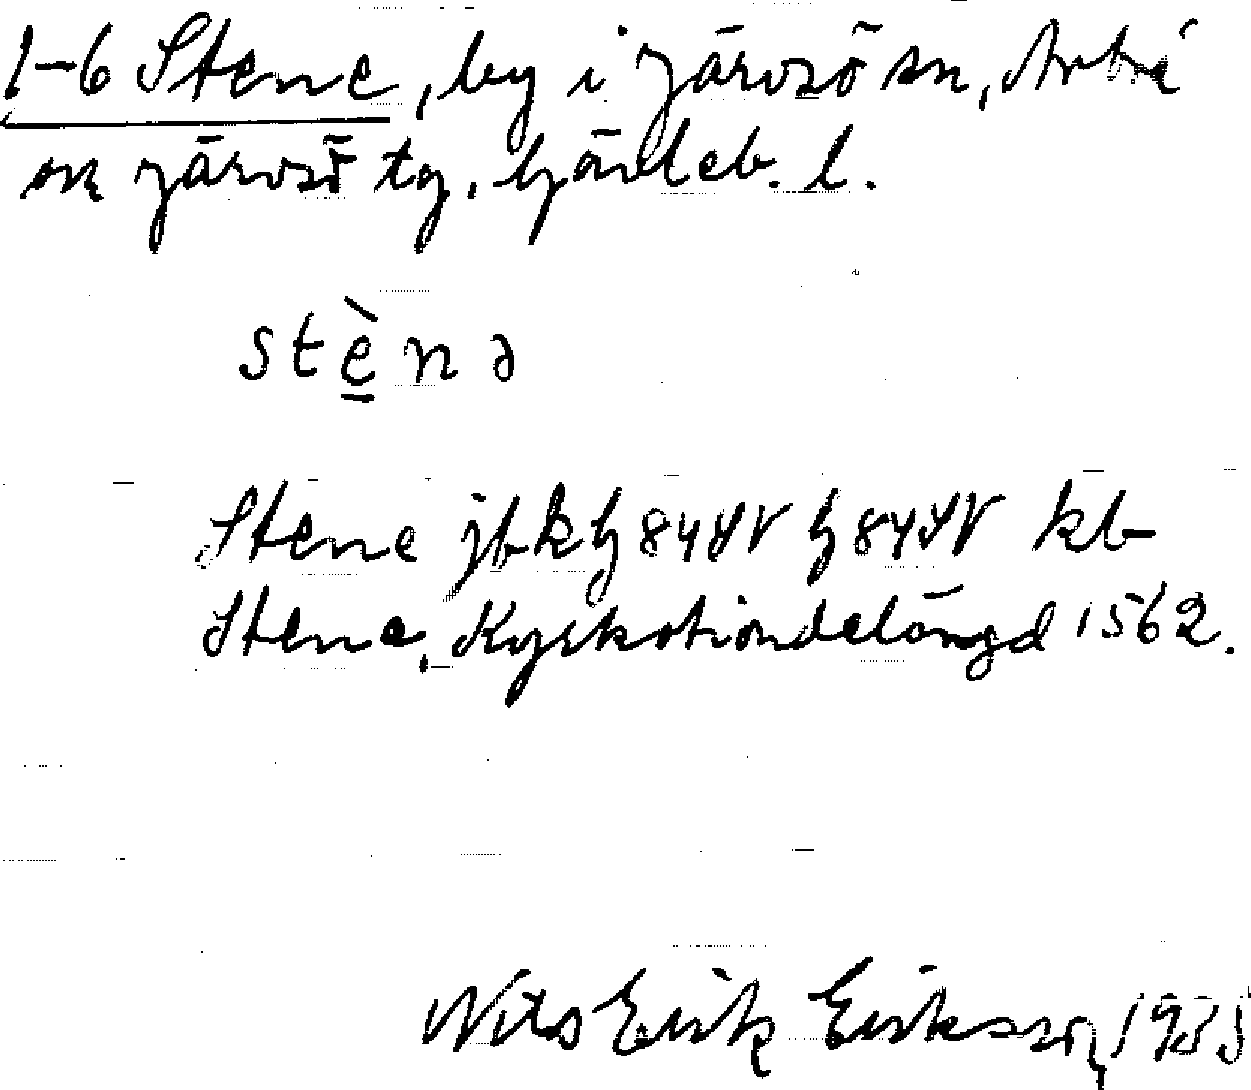 1-6 Stene, by i Järvsö sn, Arbrå
och Järvsö tg, Gävleb. l.
stè̠nə
Stene jb k hg 84 kb
Stene, Kyrkotiondelängd 1562.
Nils Erik Eriksson, 1935